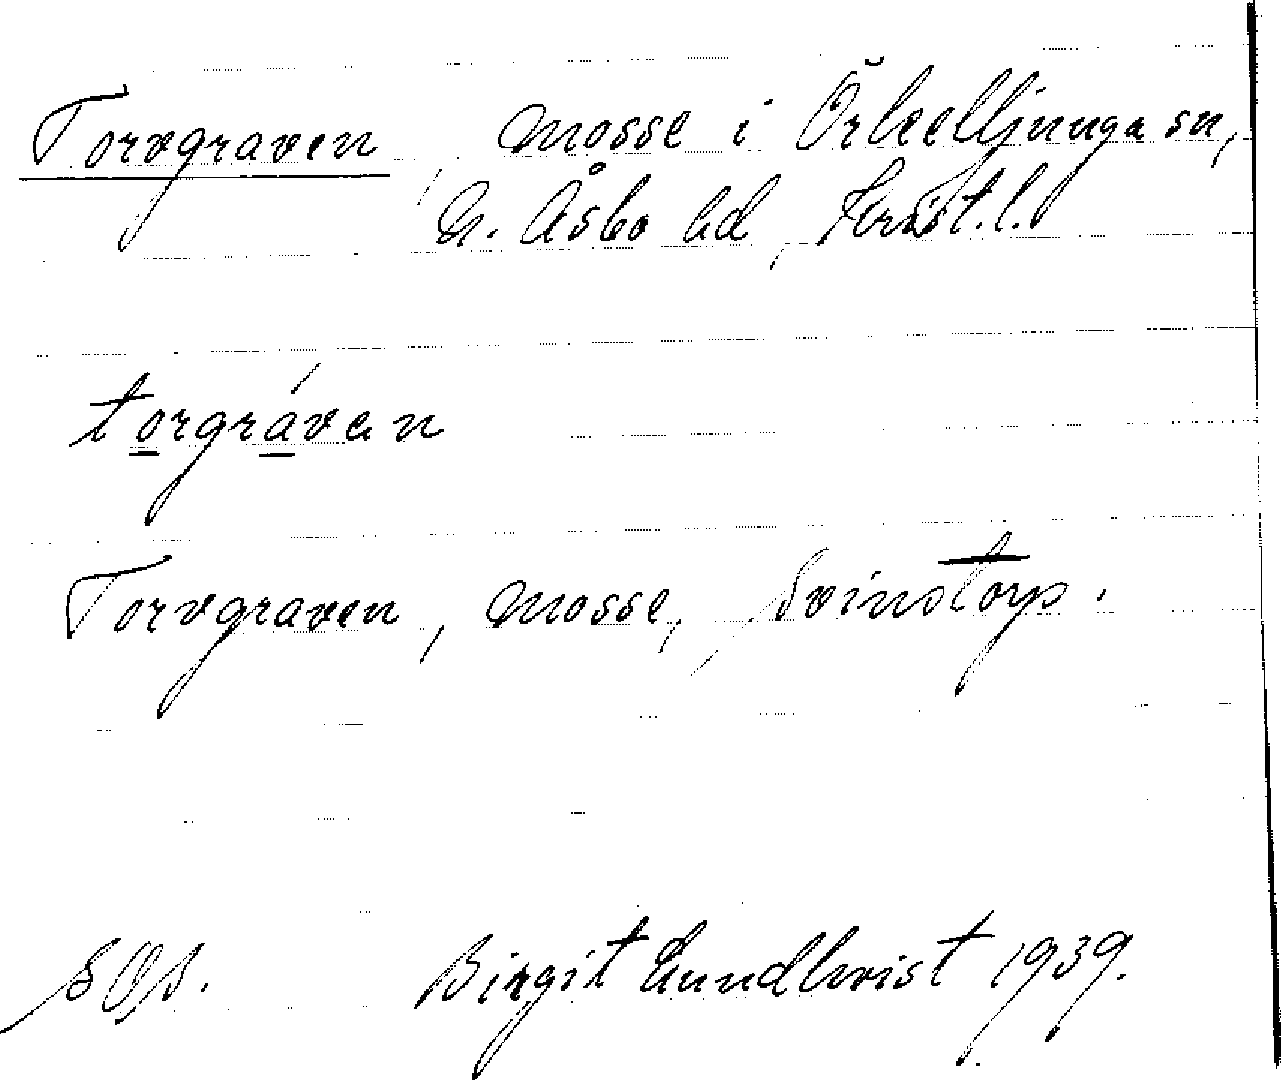 Torvgraven, mosse i Örkelljunga sn,
N. Åsbo hd, Krist.l.
torgráván
Torvgraven, mosse, Svinstorp.
SOS. Birgit Lundkvist 1939.